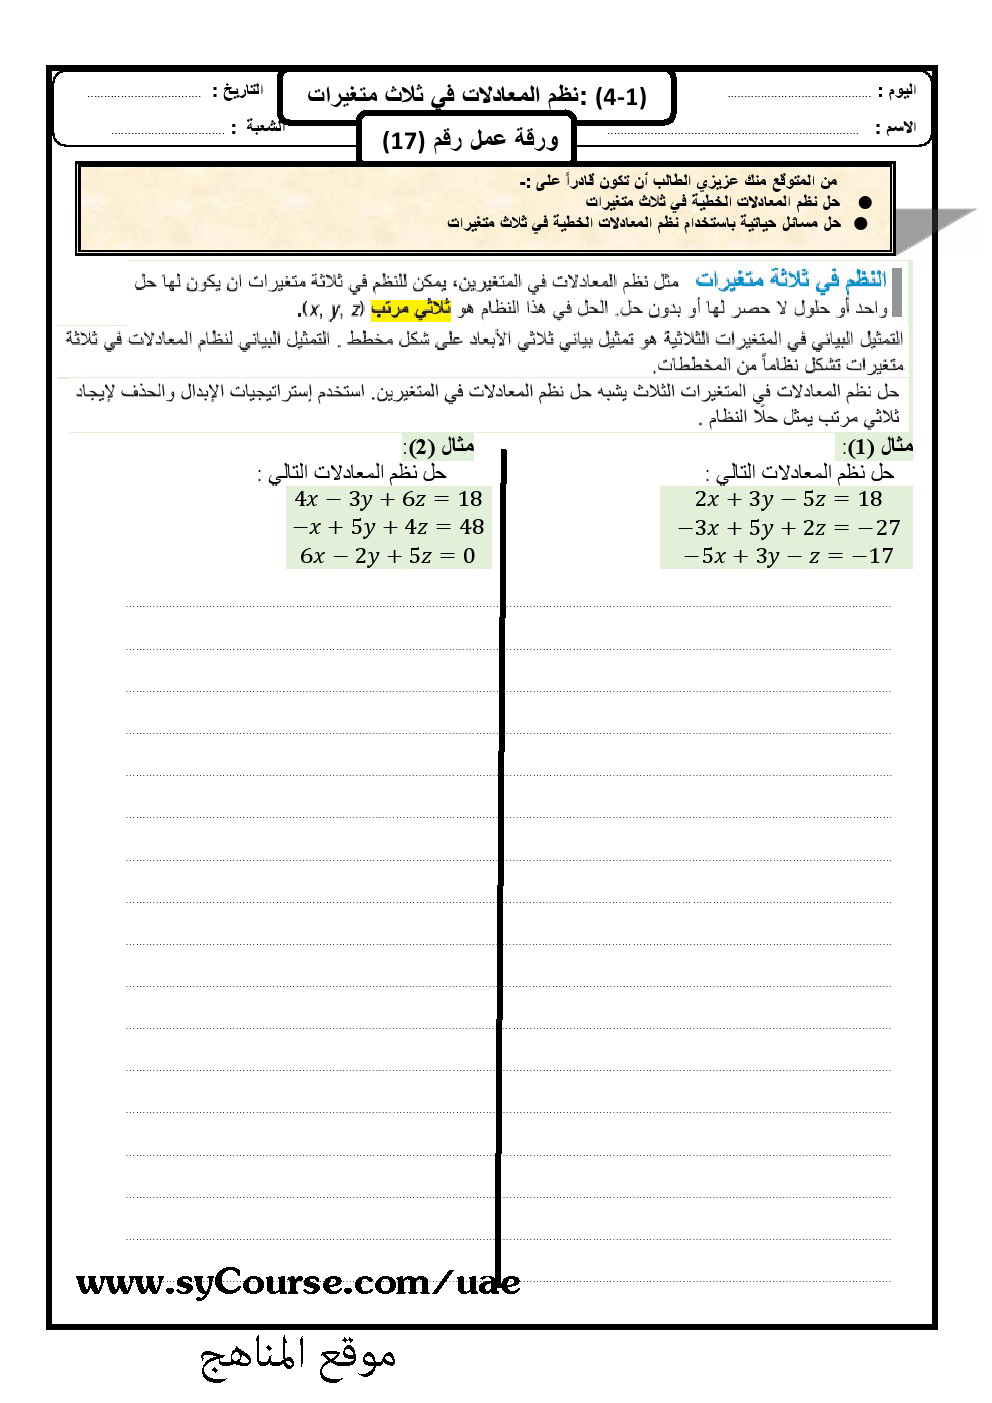 اليوم : ........................................
(4-1) :نظم المعادلات في ثلاث متغيرات
التاريخ : ................................
الاسم : ......................................................................
ورقة عمل رقم (17)
الشعبة : ................................
من المتوقع منك عزيزي الطالب أن تكون قادراً على :-
● حل نظم المعادلات الخطية في ثلاث متغيرات
● حل مسائل حياتية باستخدام نظم المعادلات الخطية في ثلاث متغيرات
النظم في ثلاثة متغيرات مثل نظم المعادلات في المتغيرين، يمكن للنظم في ثلاثة متغيرات ان يكون لها حل
واحد أو حلول لا حصر لها أو بدون حل. الحل في هذا النظام هو ثلاثي مرتب (x, y, z).
التمثيل البياني في المتغيرات الثلاثية هو تمثيل بياني ثلاثي الأبعاد على شكل مخطط . التمثيل البياني لنظام المعادلات في ثلاثة
متغيرات تشكل نظاماً من المخططات.
حل نظم المعادلات في المتغيرات الثلاث يشبه حل نظم المعادلات في المتغيرين. استخدم إستراتيجيات الإبدال والحذف لإيجاد
ثلاثي مرتب يمثل حلًا النظام .
مثال (1):
حل نظم المعادلات التالي :
2x + 3y − 5z = 18
−3x + 5y + 2z = −27
−5x + 3y − z = −17
مثال (2):
حل نظم المعادلات التالي :
4x − 3y + 6z = 18
−x + 5y + 4z = 48
6x − 2y + 5z = 0
www.syCourse.com/uae
موقع المناهج